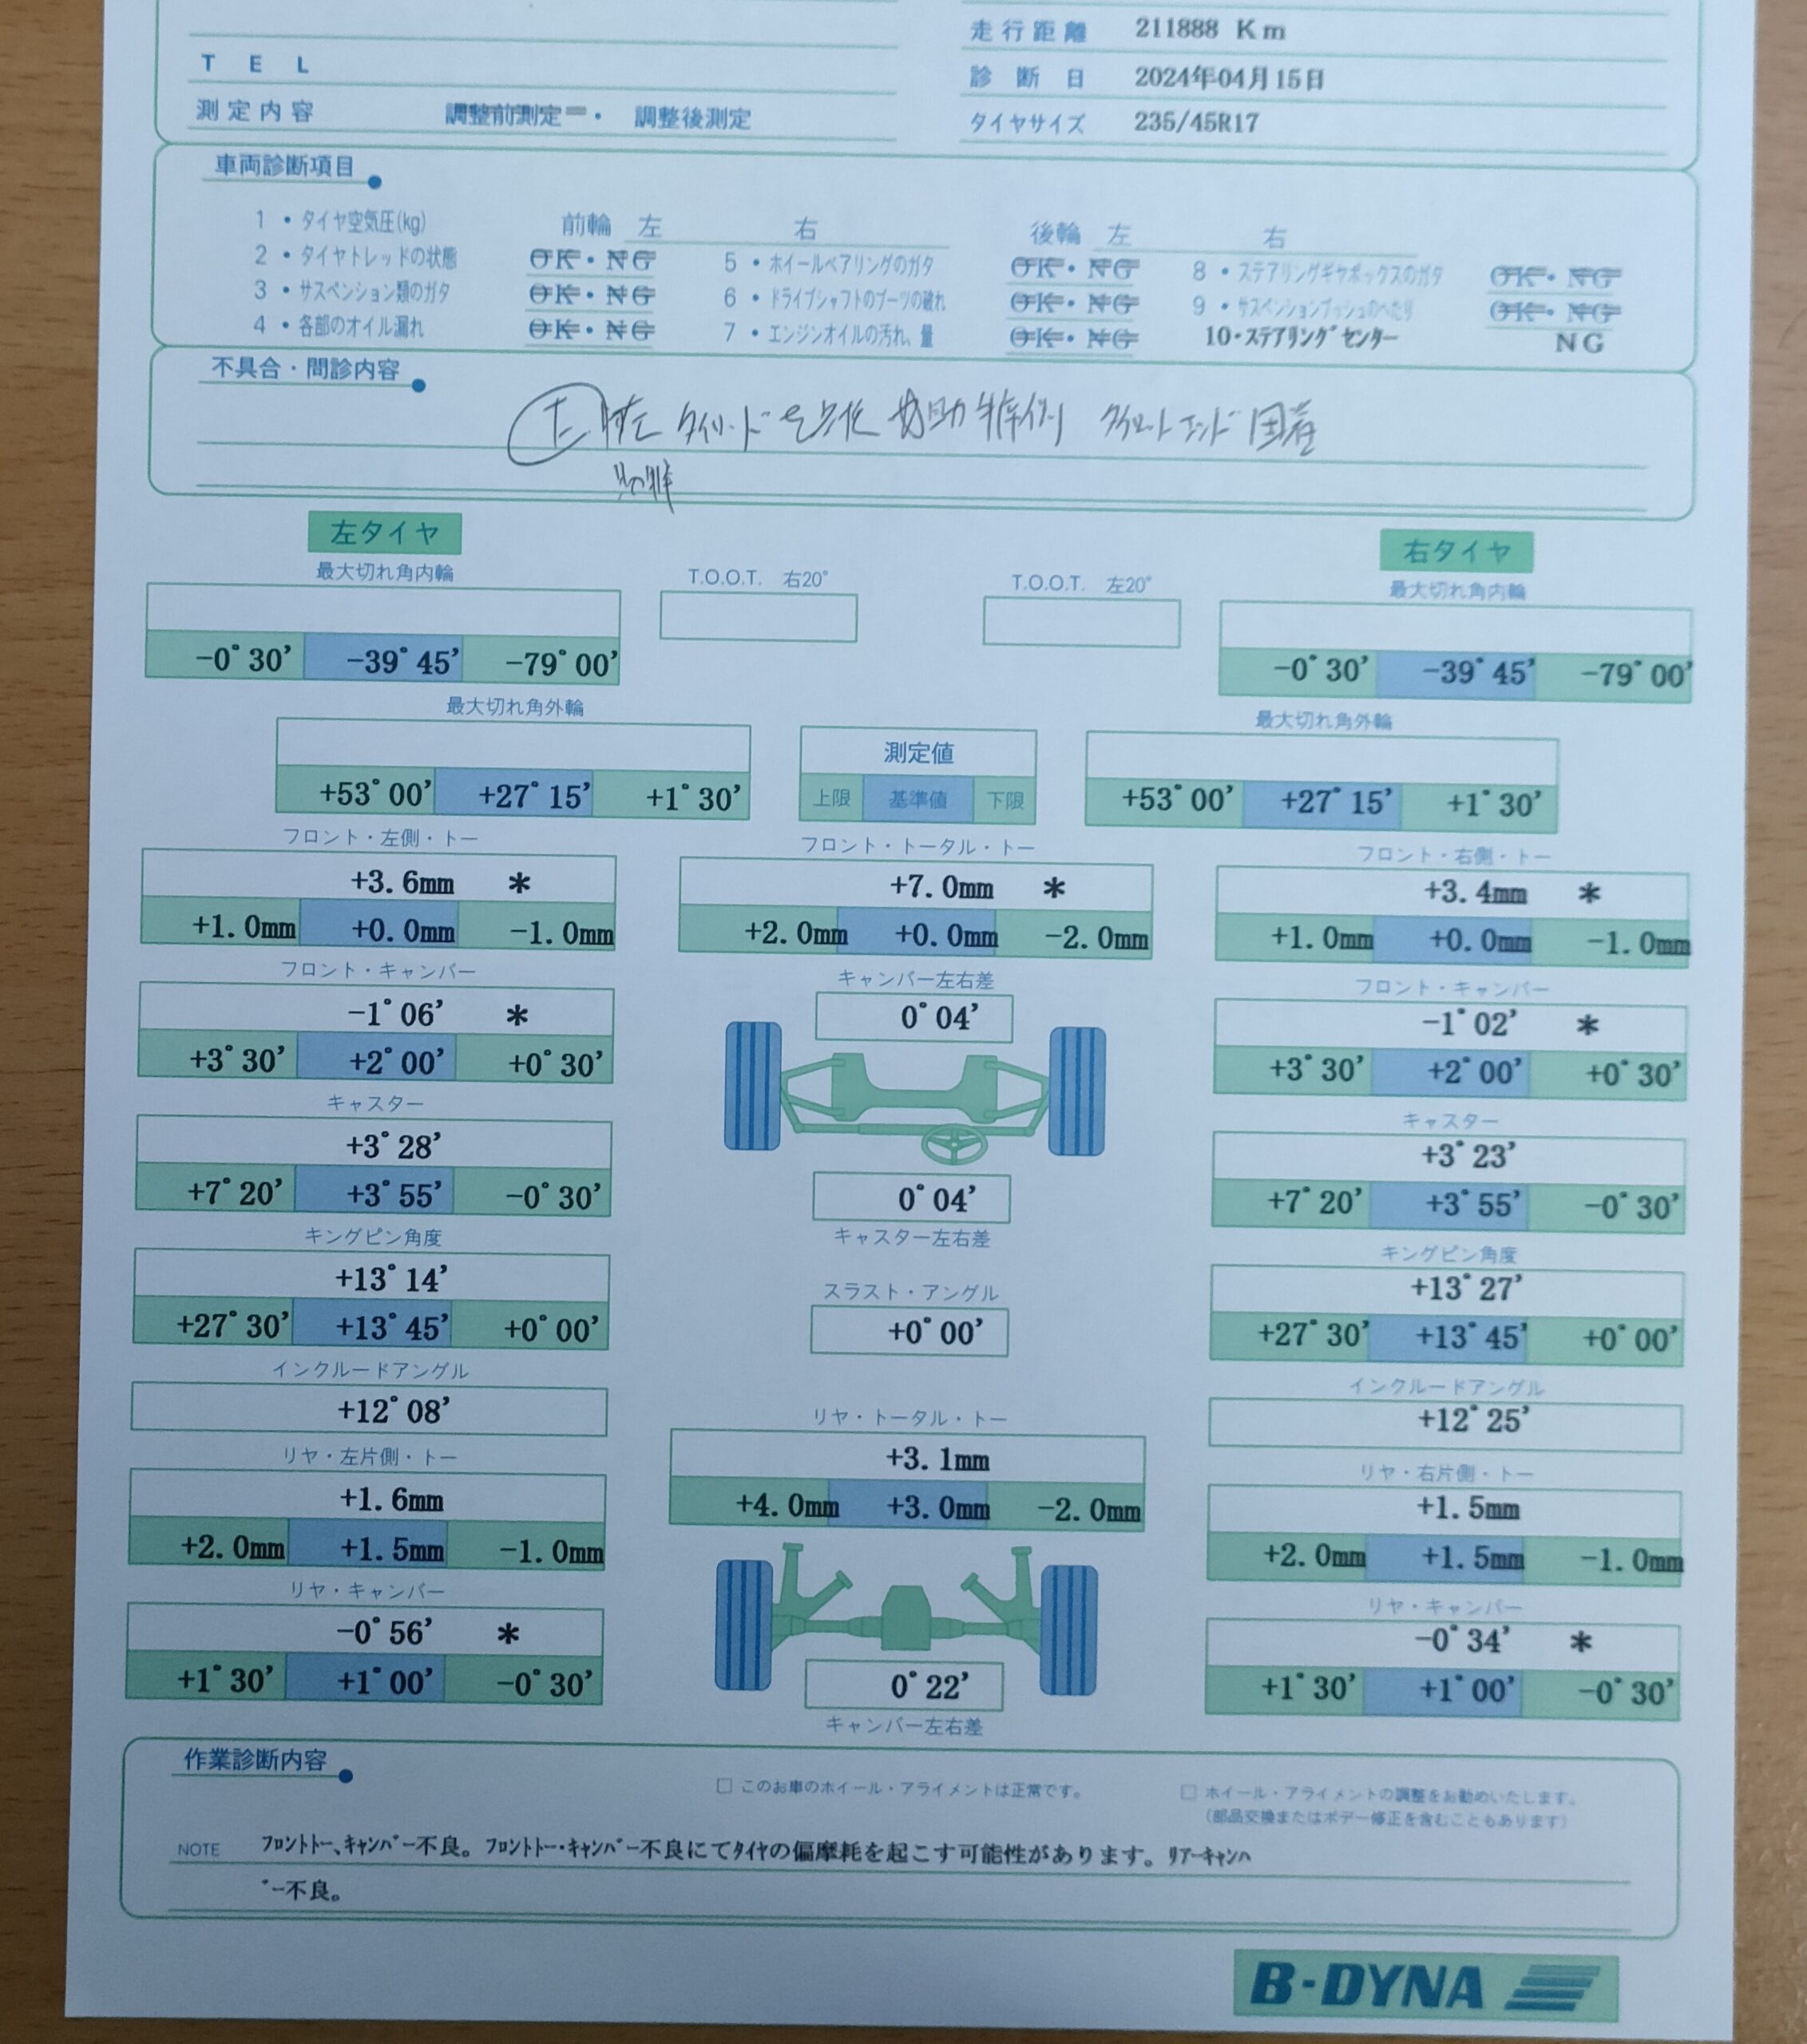 走行距離 211888 Km
TEL
診断日 2024年04月15日
測定内容 調整前測定 ・ 調整後測定
タイヤサイズ 235/45R17
車両診断項目
1・タイヤ空気圧(kg) 前輪 左 右 後輪 左 右
2・タイヤトレッドの状態 OK・NG 5・ホイールベアリングのガタ OK・NG 8・ステアリングギヤボックスのガタ OK・NG
3・サスペンション類のガタ OK・NG 6・ドライブシャフトのブーツの破れ OK・NG 9・サスペンションブッシュのへたり OK・NG
4・各部のオイル漏れ OK・NG 7・エンジンオイルの汚れ、量 OK・NG 10・ステアリングセンター NG
不具合・問診内容
固着
左タイヤ 右タイヤ
最大切れ角内輪 T.O.O.T. 右20° T.O.O.T. 左20° 最大切れ角内輪
-0°30' -39°45' -79°00' -0°30' -39°45' -79°00'
最大切れ角外輪 測定値 最大切れ角外輪
+53°00' +27°15' +1°30' 上限 基準値 下限 +53°00' +27°15' +1°30'
フロント・左側・トー フロント・トータル・トー フロント・右側・トー
+3.6mm * +7.0mm * +3.4mm *
+1.0mm +0.0mm -1.0mm +2.0mm +0.0mm -2.0mm +1.0mm +0.0mm -1.0mm
フロント・キャンバー キャンバー左右差 フロント・キャンバー
-1°06' * 0°04' -1°02' *
+3°30' +2°00' +0°30' +3°30' +2°00' +0°30'
キャスター キャスター
+3°28' +3°23'
+7°20' +3°55' -0°30' 0°04' +7°20' +3°55' -0°30'
キングピン角度 キャスター左右差 キングピン角度
+13°14' スラスト・アングル +13°27'
+27°30' +13°45' +0°00' +0°00' +27°30' +13°45' +0°00'
インクルードアングル インクルードアングル
+12°08' リヤ・トータル・トー +12°25'
リヤ・左片側・トー +3.1mm リヤ・右片側・トー
+1.6mm +4.0mm +3.0mm -2.0mm +1.5mm
+2.0mm +1.5mm -1.0mm +2.0mm +1.5mm -1.0mm
リヤ・キャンバー リヤ・キャンバー
-0°56' * -0°34' *
+1°30' +1°00' -0°30' 0°22' +1°30' +1°00' -0°30'
キャンバー左右差
作業診断内容
□ このお車のホイール・アライメントは正常です。 □ ホイール・アライメントの調整をお勧めいたします。
(部品交換またはボデー修正を含むこともあります)
NOTE フロントトー、キャンバー不良。フロントトー・キャンバー不良にてタイヤの偏摩耗を起こす可能性があります。リアーキャンハ
゛ー不良。
B-DYNA